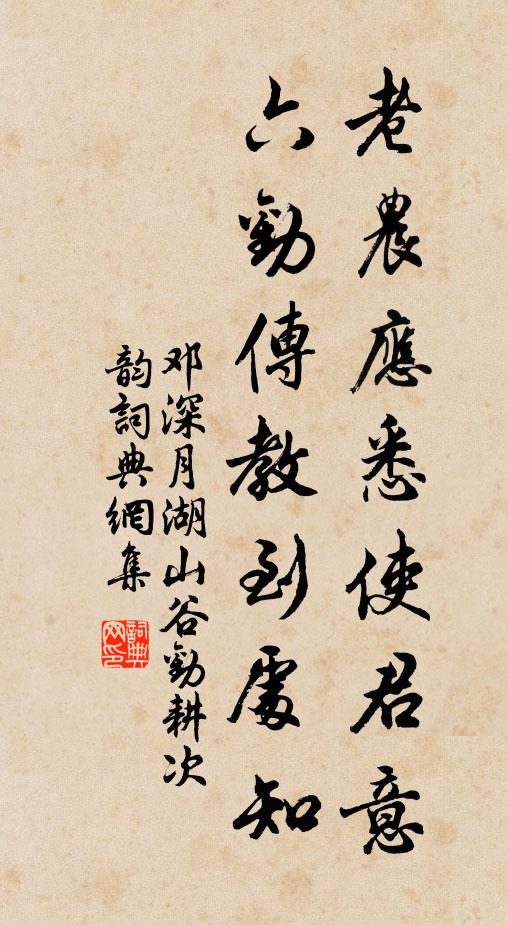 老農應悉使君意
六勸傳教到處知
邓深月湖山谷勸耕次
韵詞典網集
詞典
网印